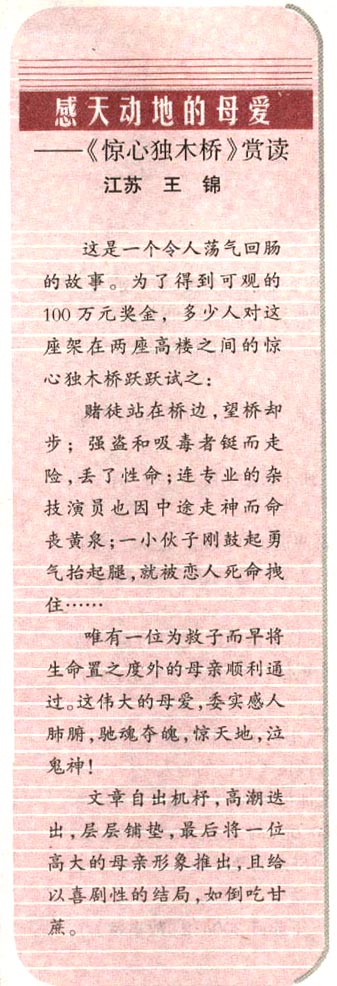 感天动地的母爱
——《惊心独木桥》赏读
江苏 王 锦
这是一个令人荡气回肠
的故事。为了得到可观的
100万元奖金，多少人对这
座架在两座高楼之间的惊
心独木桥跃跃试之：
赌徒站在桥边，望桥却
步；强盗和吸毒者铤而走
险，丢了性命；连专业的杂
技演员也因中途走神而命
丧黄泉；一小伙子刚鼓起勇
气抬起腿，就被恋人死命拽
住……
唯有一位为救子而早将
生命置之度外的母亲顺利通
过。这伟大的母爱，委实感人
肺腑，驰魂夺魄，惊天地，泣
鬼神！
文章自出机杼，高潮迭
出，层层铺垫，最后将一位
高大的母亲形象推出，且给
以喜剧性的结局，如倒吃甘
蔗。